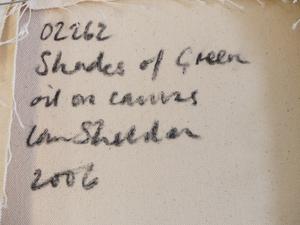 02262
Shades of Green
oil on canvas
Ian Sheldon
2006